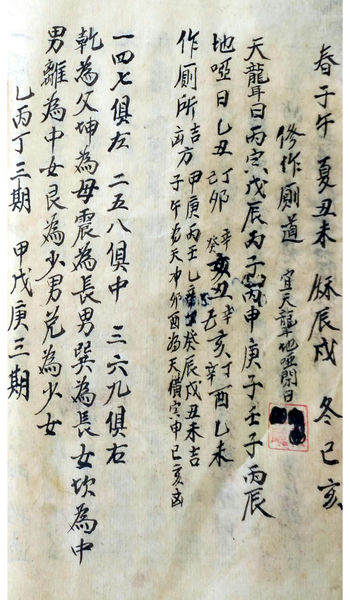 春子午 夏丑未 秌辰戌 冬巳亥
修作厠道 宜天聾地啞閉日
天聾日丙寅戊辰丙子丙申庚子壬子丙辰
地啞日乙丑丁卯 辛亥 辛酉乙未
作厠所吉方甲庚丙壬乙 癸辰戌丑未吉
凶方子午為天冲卯酉為天 寅申巳亥凶
一四七俱左 二五八俱中 三六九俱右
乾為父坤為母震為長男巽為長女坎為中
男離為中女艮為少男兌為少女
乙丙丁三期 甲戊庚三期